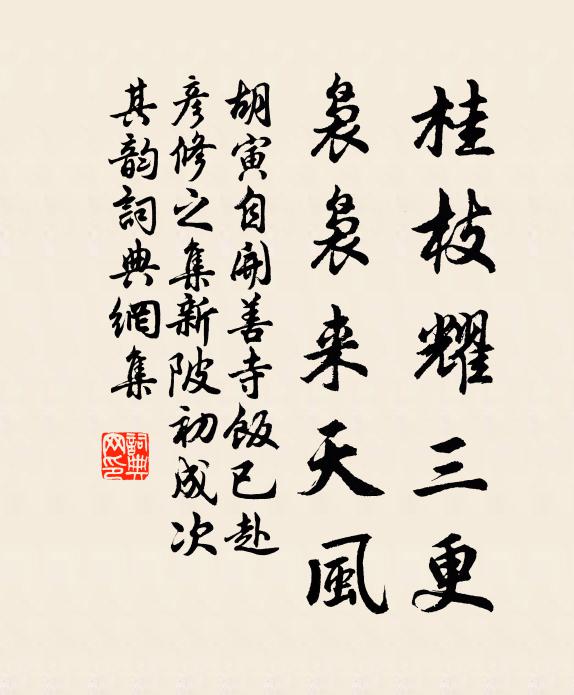 桂枝耀三更
袅袅来天風
胡寅自開善寺飯已赴
彦修之集新陂初成次
其韵詞典網集
詞典網印